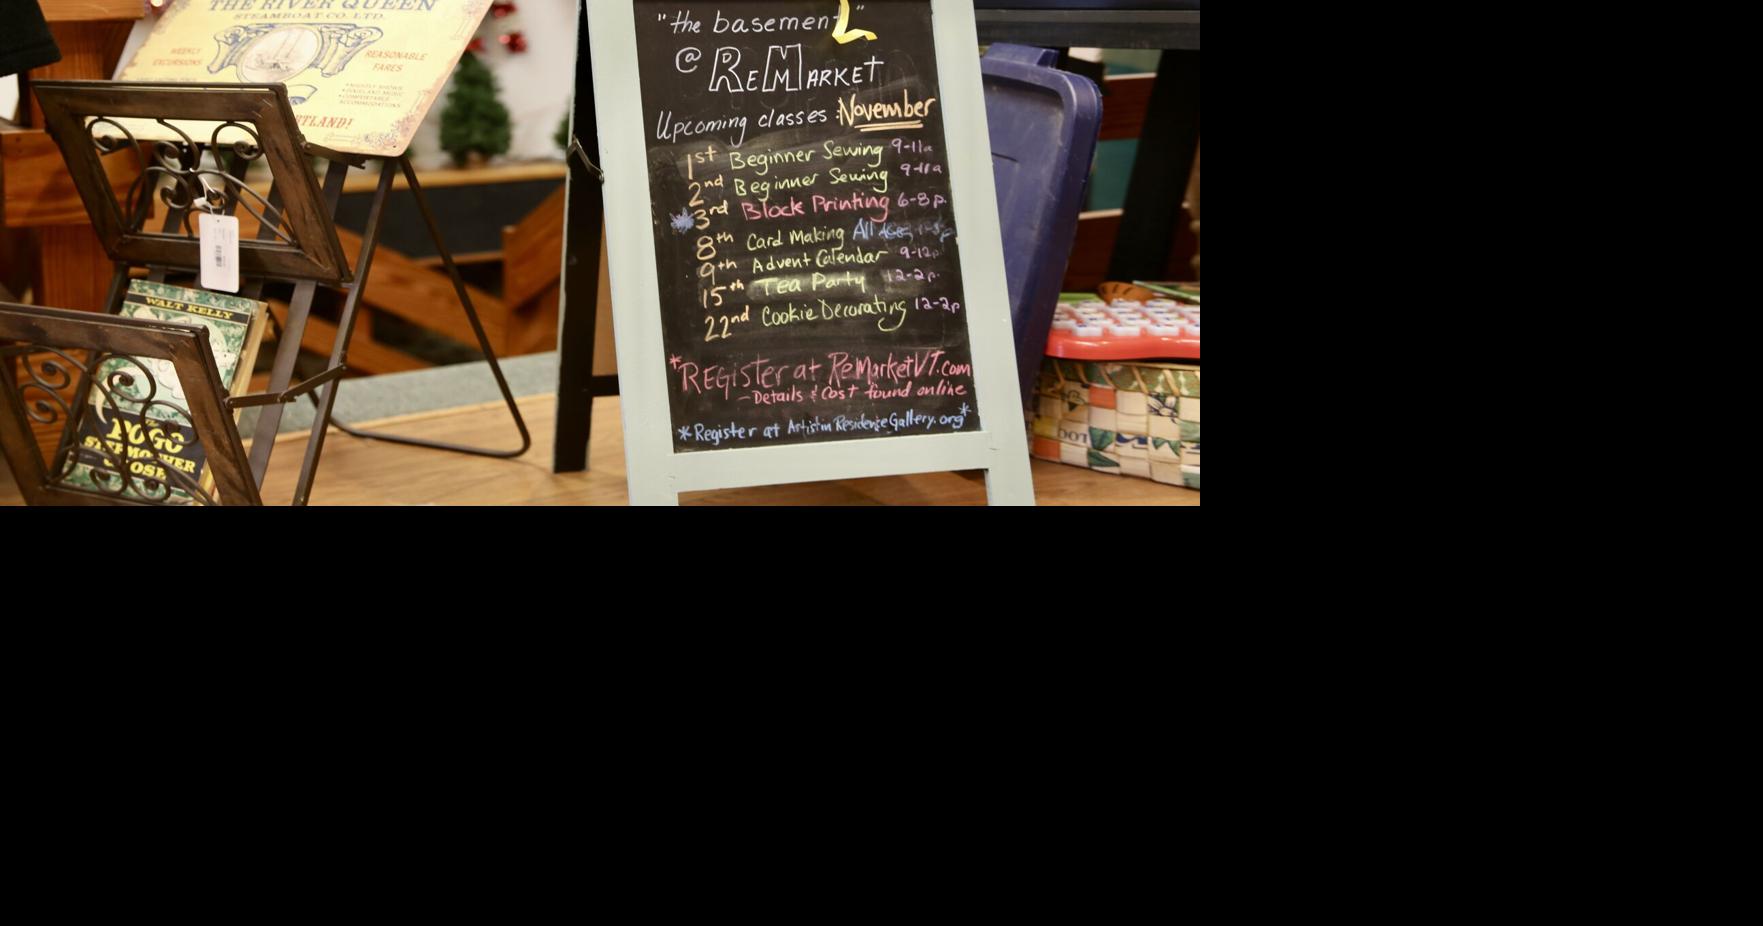 THE RIVER QUEEN
STEAMBOAT CO. LTD.
WEEKLY
EXCURSIONS
REASONABLE
FARES
•NIGHTLY SHOWS
•DIXIELAND MUSIC
•COMFORTABLE
ACCOMMODATIONS
WALT KELLY
The
POGO
STEPMOTHER
GOOSE
"the basement"
@ REMARKET
Upcoming classes: November
1st Beginner Sewing 9-11a
2nd Beginner Sewing 9-11a
3rd Block Printing 6-8p.
8th Card Making All Ages 1-3p
9th Advent Calendar 9-12p
15th Tea Party 12-2p.
22nd Cookie Decorating 12-2p
*REGister at ReMarketVT.com
-Details & Cost found online
*Register at ArtistinResidenceGallery.org*
DOT